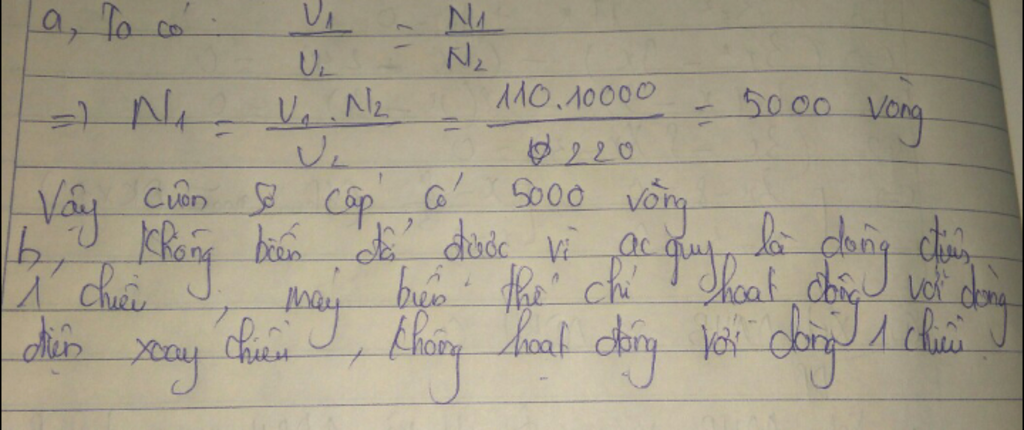 a, Ta có : U1/U2 = N1/N2
=> N1 = U1.N2/U2 = 110.10000/220 = 5000 vòng
Vậy cuôn sơ cấp có 5000 vòng
b, Không biến đổ được vì acquy là dòng điện
1 chiều, máy biến thế chỉ hoạt động với dòng
điện xoay chiều, không hoạt động với dòng 1 chiều